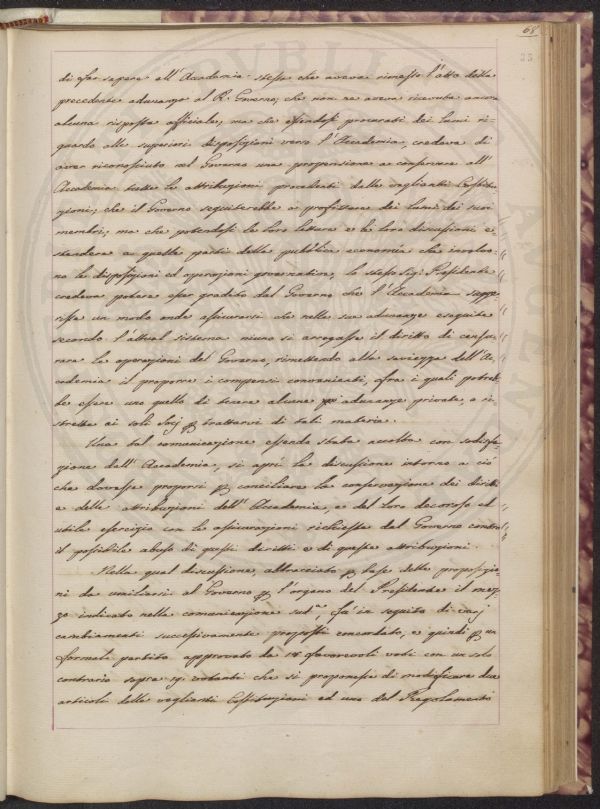 68
25
di far sapere all' Accademia stessa che aveva rimesso l'atto della
precedente adunanza al R. Governo, che non ne aveva ricevuta ancora
alcuna risposta officiale, ma che essendosi procurati dei lumi ri-
guardo alle superiori disposizioni verso l'Accademia, credeva di
aver riconosciuto nel Governo una propensione a conservare all'
Accademia tutte le attribuzioni precettati dalle veglianti Costitu-
zioni, che il Governo seguiterebbe a profittare dei lumi dei suoi
membri, ma che potendosi le loro letture e le loro discussioni e-
stendere a quelle parti della pubblica economia che involvo-
no le disposizioni ed operazioni governative, lo stesso Sig: Presidente
credeva potere esser gradito dal Governo che l'Accademia sugge-
risse un modo onde assicurarsi che nelle sue adunanze eseguite
secondo l'attual sistema niuno si arrogasse il diritto di censu-
rare le operazioni del Governo, rimettendo alla saviezza dell'Ac-
cademia il proporre i compensi convenienti, fra i quali potreb-
be essere uno quello di tenere alcune adunanze private, o ri-
strette ai soli Socj p trattarvi di tali materie.
Una tal comunicazione essendo stata accolta con sodisfa-
zione dall' Accademia, si aprì la discussione intorno a ciò
che dovesse proporsi p conciliare la conservazione dei diritti
e delle attribuzioni dell' Accademia, e del loro decoroso ed
utile esercizio con le assicurazioni richieste dal Governo contro
il possibile abuso di questi diritti e di queste attribuzioni.
Nella qual discussione, abbracciato p base delle proposizio-
ni da umiliarsi al Governo p l'organo del Presidente il mez-
zo indicato nella comunicazione sud.ª, fù in seguito di varj
cambiamenti successivamente proposti concordato, e quindi p un
formale partito approvato da 18 favorevoli voti con un solo
contrario sopra 19 votanti che si proponesse di modificare due
articoli delle veglianti Costituzioni ed uno del Regolamento